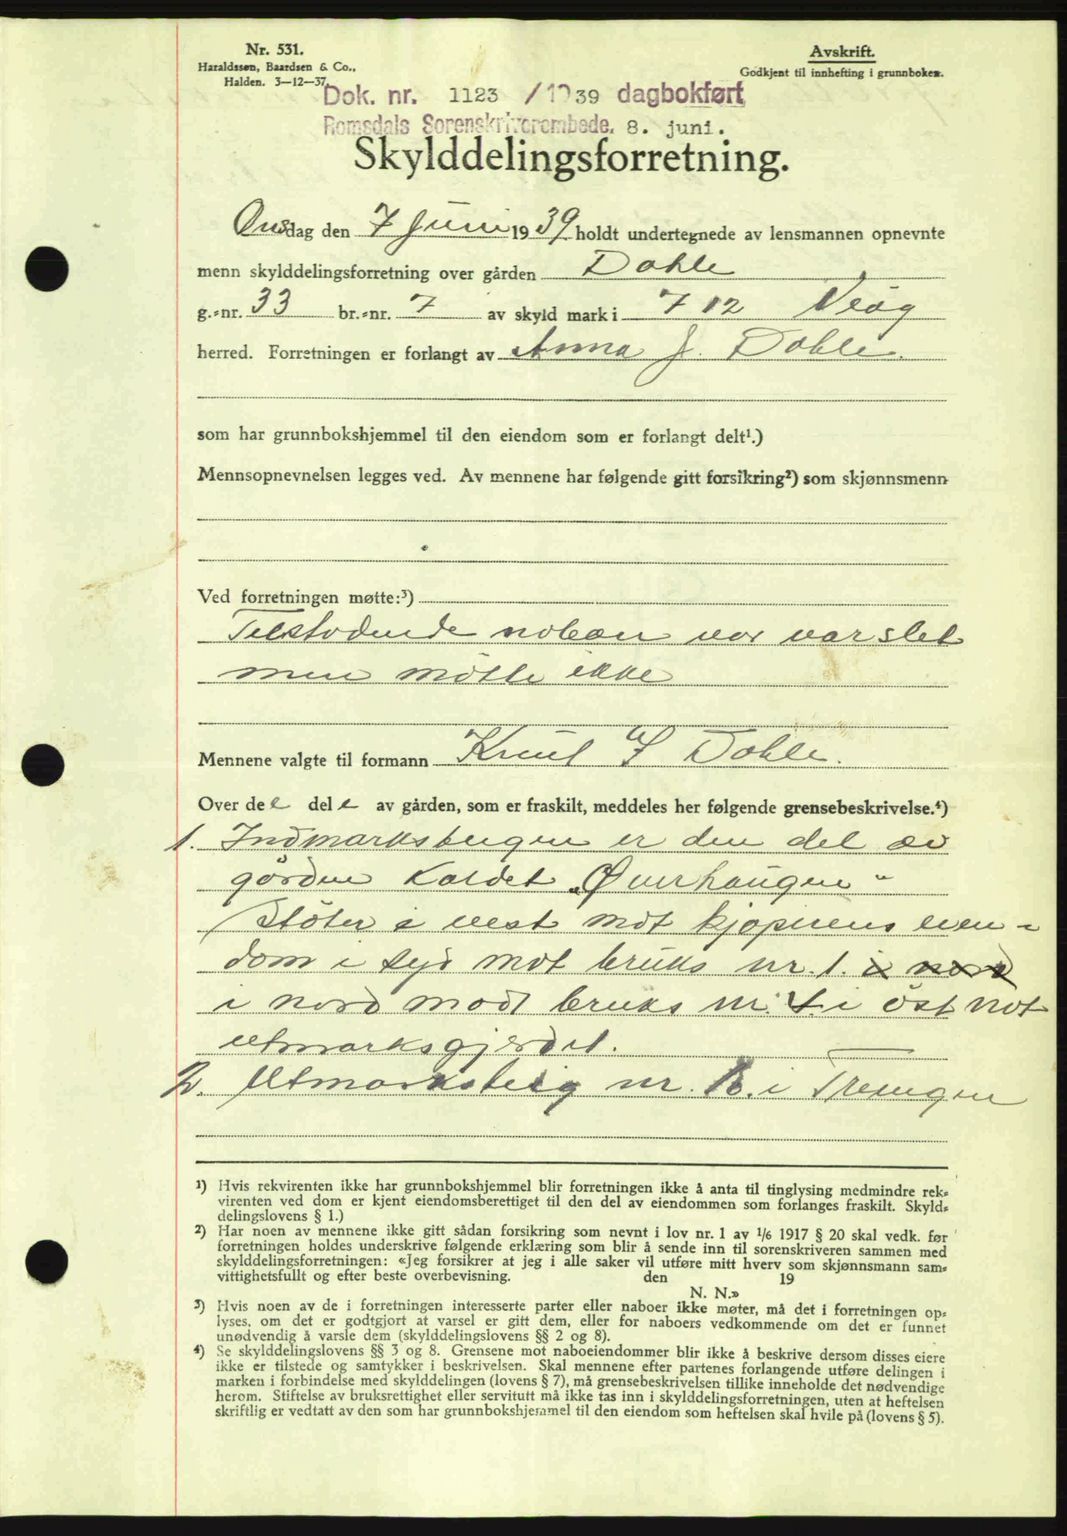 Nr. 531.
Haraldssen, Baardsen & Co.,
Halden. 3—12—37.
Avskrift.
Godkjent til innhefting i grunnboken.
Dok. nr. 1123 /1939 dagbokført
Romsdals Sorenskriverembede, 8. juni.
Skylddelingsforretning.
Onsdag den 7 Juni 1939 holdt undertegnede av lensmannen opnevnte
menn skylddelingsforretning over gården Dahle
g.-nr. 33 br.-nr. 7 av skyld mark i 7 12 Veøy
herred. Forretningen er forlangt av Anna J. Dahle.
som har grunnbokshjemmel til den eiendom som er forlangt delt¹.)
Mennsopnevnelsen legges ved. Av mennene har følgende gitt forsikring²) som skjønnsmenn
Ved forretningen møtte:³)
Tilstødende naboer var varslet
men møtte ikke
Mennene valgte til formann Knut Dahle.
Over de e del e av gården, som er fraskilt, meddeles her følgende grensebeskrivelse.⁴)
1. Indmarksteigen er den del av
gården kaldet „Øverhaugen"
Støter i vest mot kjøperens eien-
dom i syd mot bruks nr. 1. i nord
i nord modt bruks nr. 4. i öst mot
utmarksgjerdet.
2. Utmarksteig nr. i Treingen
¹) Hvis rekvirenten ikke har grunnbokshjemmel blir forretningen ikke å anta til tinglysing medmindre rek-
virenten ved dom er kjent eiendomsberettiget til den del av eiendommen som forlanges fraskilt. Skyld-
delingslovens § 1.)
²) Har noen av mennene ikke gitt sådan forsikring som nevnt i lov nr. 1 av 1/6 1917 § 20 skal vedk. før
forretningen holdes underskrive følgende erklæring som blir å sende inn til sorenskriveren sammen med
skylddelingsforretningen: «Jeg forsikrer at jeg i alle saker vil utføre mitt hverv som skjønnsmann sam-
vittighetsfullt og efter beste overbevisning. den 19
N. N.»
³) Hvis noen av de i forretningen interesserte parter eller naboer ikke møter, må det i forretningen op-
lyses, om det er godtgjort at varsel er gitt dem, eller for naboers vedkommende om det er funnet
unødvendig å varsle dem (skylddelingslovens §§ 2 og 8).
⁴) Se skylddelingslovens §§ 3 og 8. Grensene mot naboeiendommer blir ikke å beskrive dersom disses eiere
ikke er tilstede og samtykker i beskrivelsen. Skal mennene efter partenes forlangende utføre delingen i
marken i forbindelse med skylddelingen (lovens § 7), må grensebeskrivelsen tillike inneholde det nødvendige
herom. Stiftelse av bruksrettighet eller servitutt må ikke tas inn i skylddelingsforretningen, uten at heftelsen
skriftlig er vedtatt av den som har grunnbokshjemmel til den eiendom som heftelsen skal hvile på (lovens § 5).